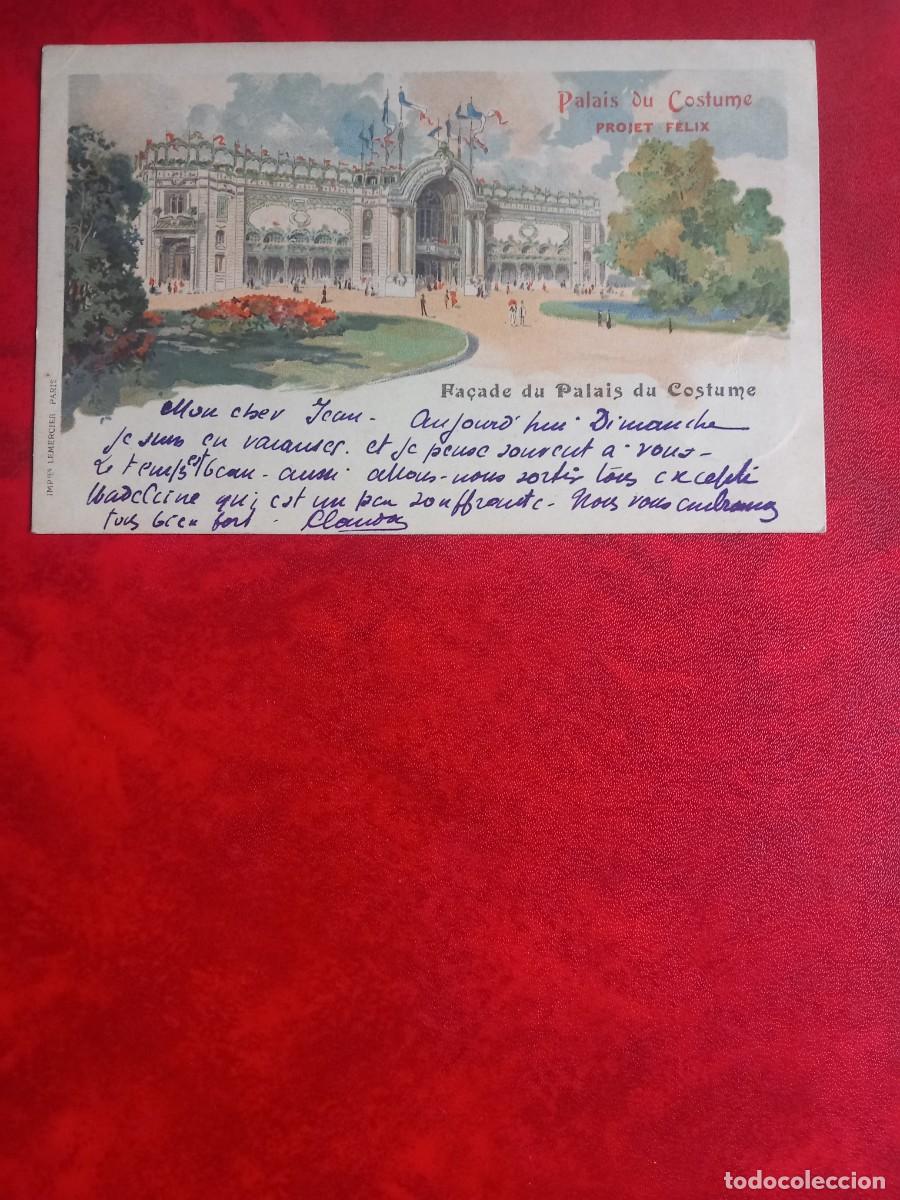 Palais du Costume
PROJET FÉLIX
Façade du Palais du Costume
IMPIES LEMERCIER PARIS
Mon cher Jean - Aujourd'hui Dimanche
je suis en vacances et je pense souvent à vous -
Le temps est beau - aussi allons-nous sortir tous excepté
Madeleine qui est un peu souffrante - Nous vous embrassons
tous bien fort - Claude
todocoleccion